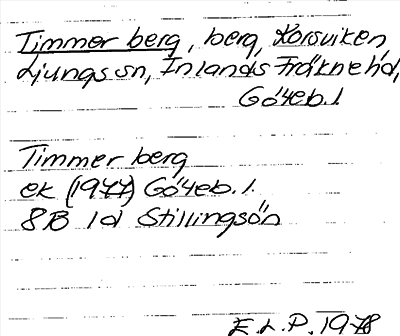 Timmerberg, berg, Korsviken,
Ljungs sn, Inlands Fräkne hd,
Göteb. l.
Timmerberg
ek (1977) Göteb. l.
8B 1d Stillingsön
E.L.P. 1978